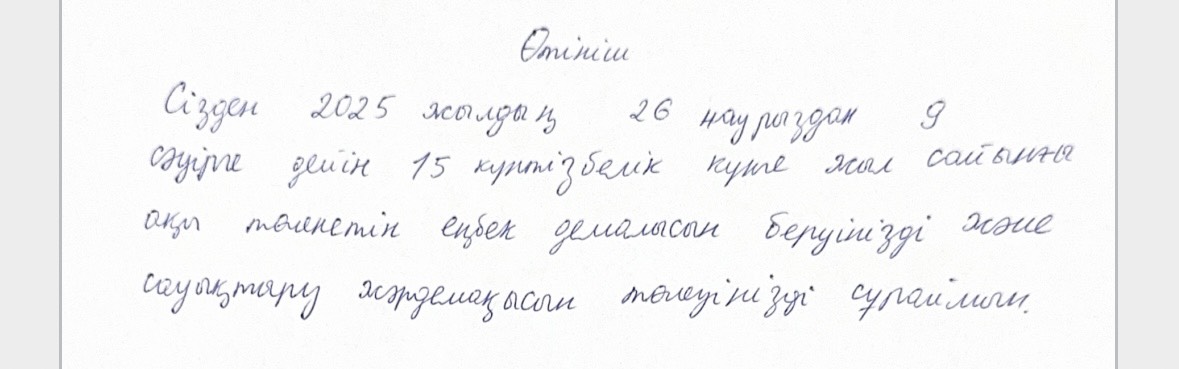 Өтініш
Сізден 2025 жылдың 26 наурыздан 9
сәуірге дейін 15 күнтізбелік күнге жыл сайынғы
ақы төленетін еңбек демалысын беруіңізді және
сауықтыру жәрдемақысын төлеуіңізді сұраймын.